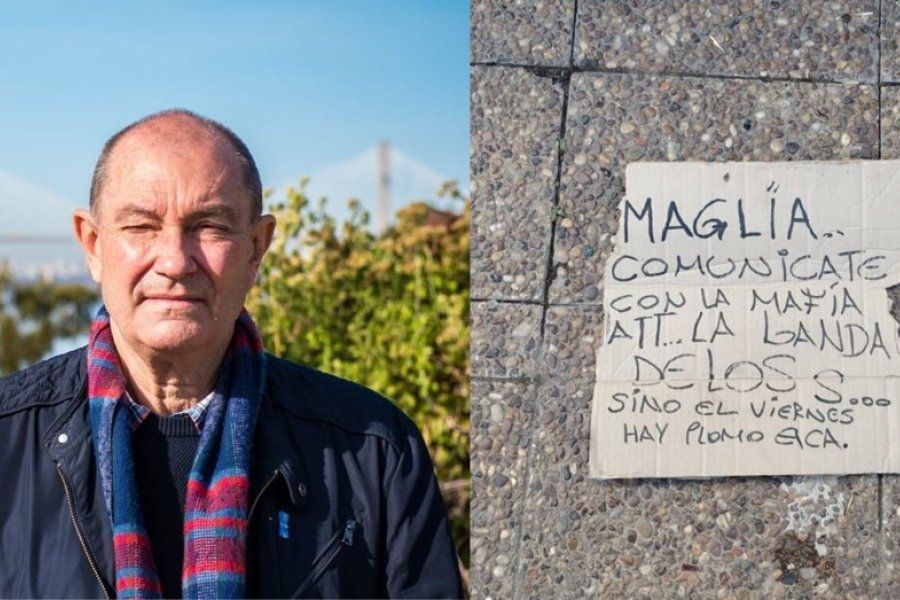 MAGLÏA..
COMUNICATE
CON LA MAFÍA
ATT... LA BANDA
DE LOS S...
SINO EL VIERNES
HAY PLOMO